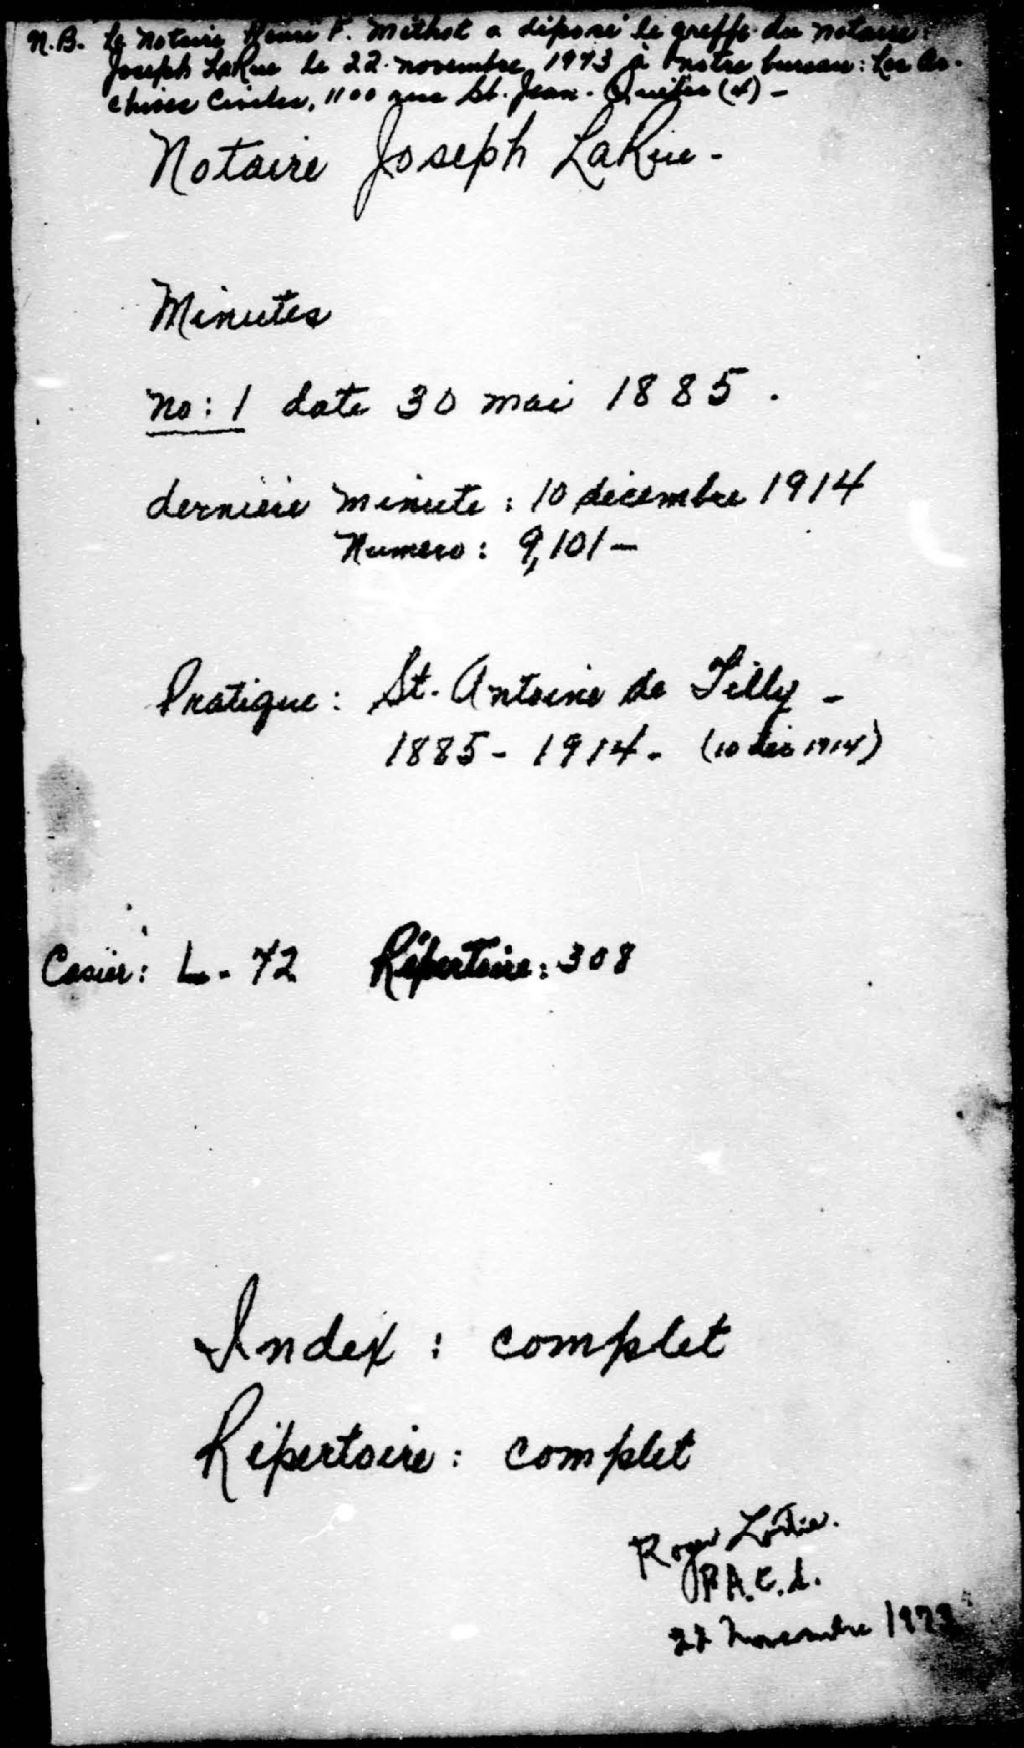 N.B. Le notaire Henri F. Methot a déposé le greffe du notaire
Joseph LaRue le 22 novembre 1973 à notre bureau: Les Ar-
chives Civiles, 1100 rue St. Jean. Québec (4) -
Notaire Joseph LaRue -
Minutes
no: 1 date 30 mai 1885.
dernière minute: 10 décembre 1914
Numero: 9,101 -
Pratique: St. Antoine de Tilly -
1885 - 1914 - (10 déc 1914)
Casier: L - 72 Répertoire: 308
Index: complet
Répertoire: complet
Roger Lortie.
22 Novembre 1973